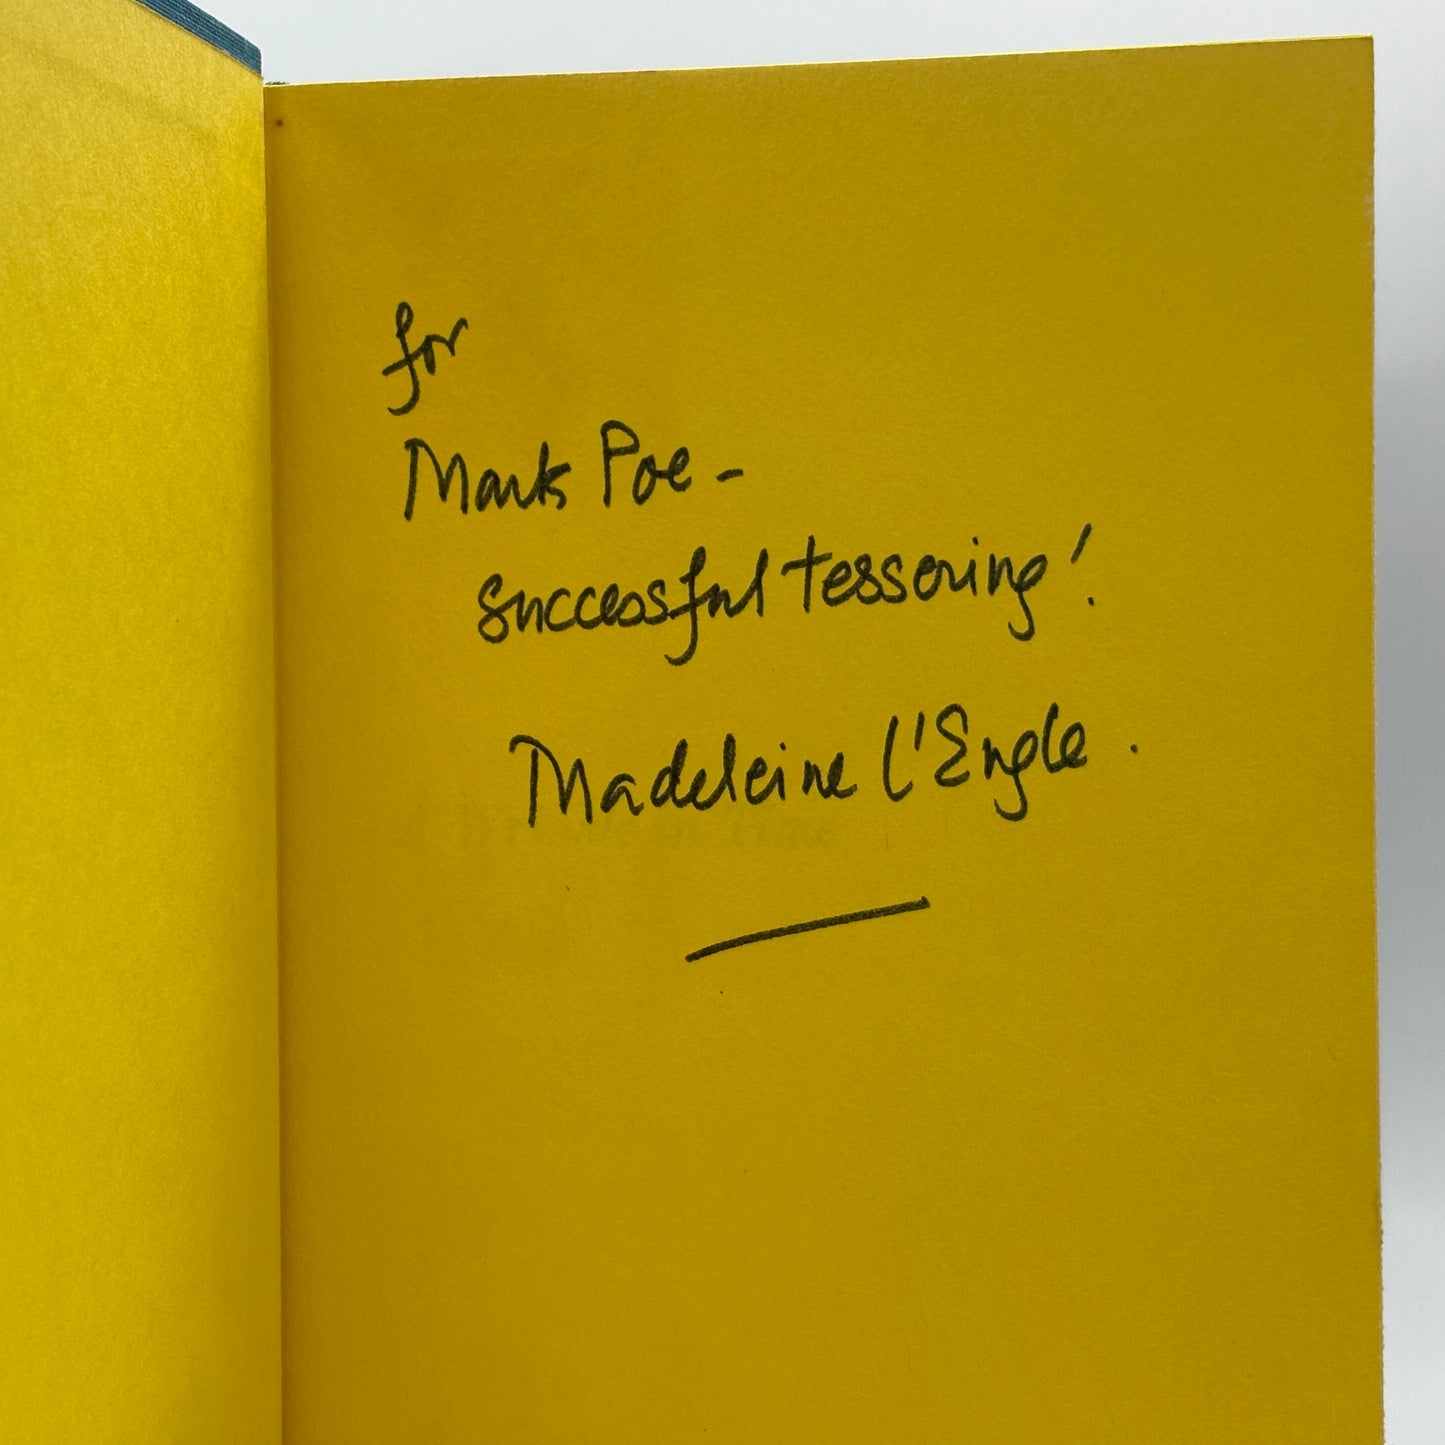 for
Mark Poe -
successful tessering!
Madeleine l'Engle.
A Wrinkle in Time